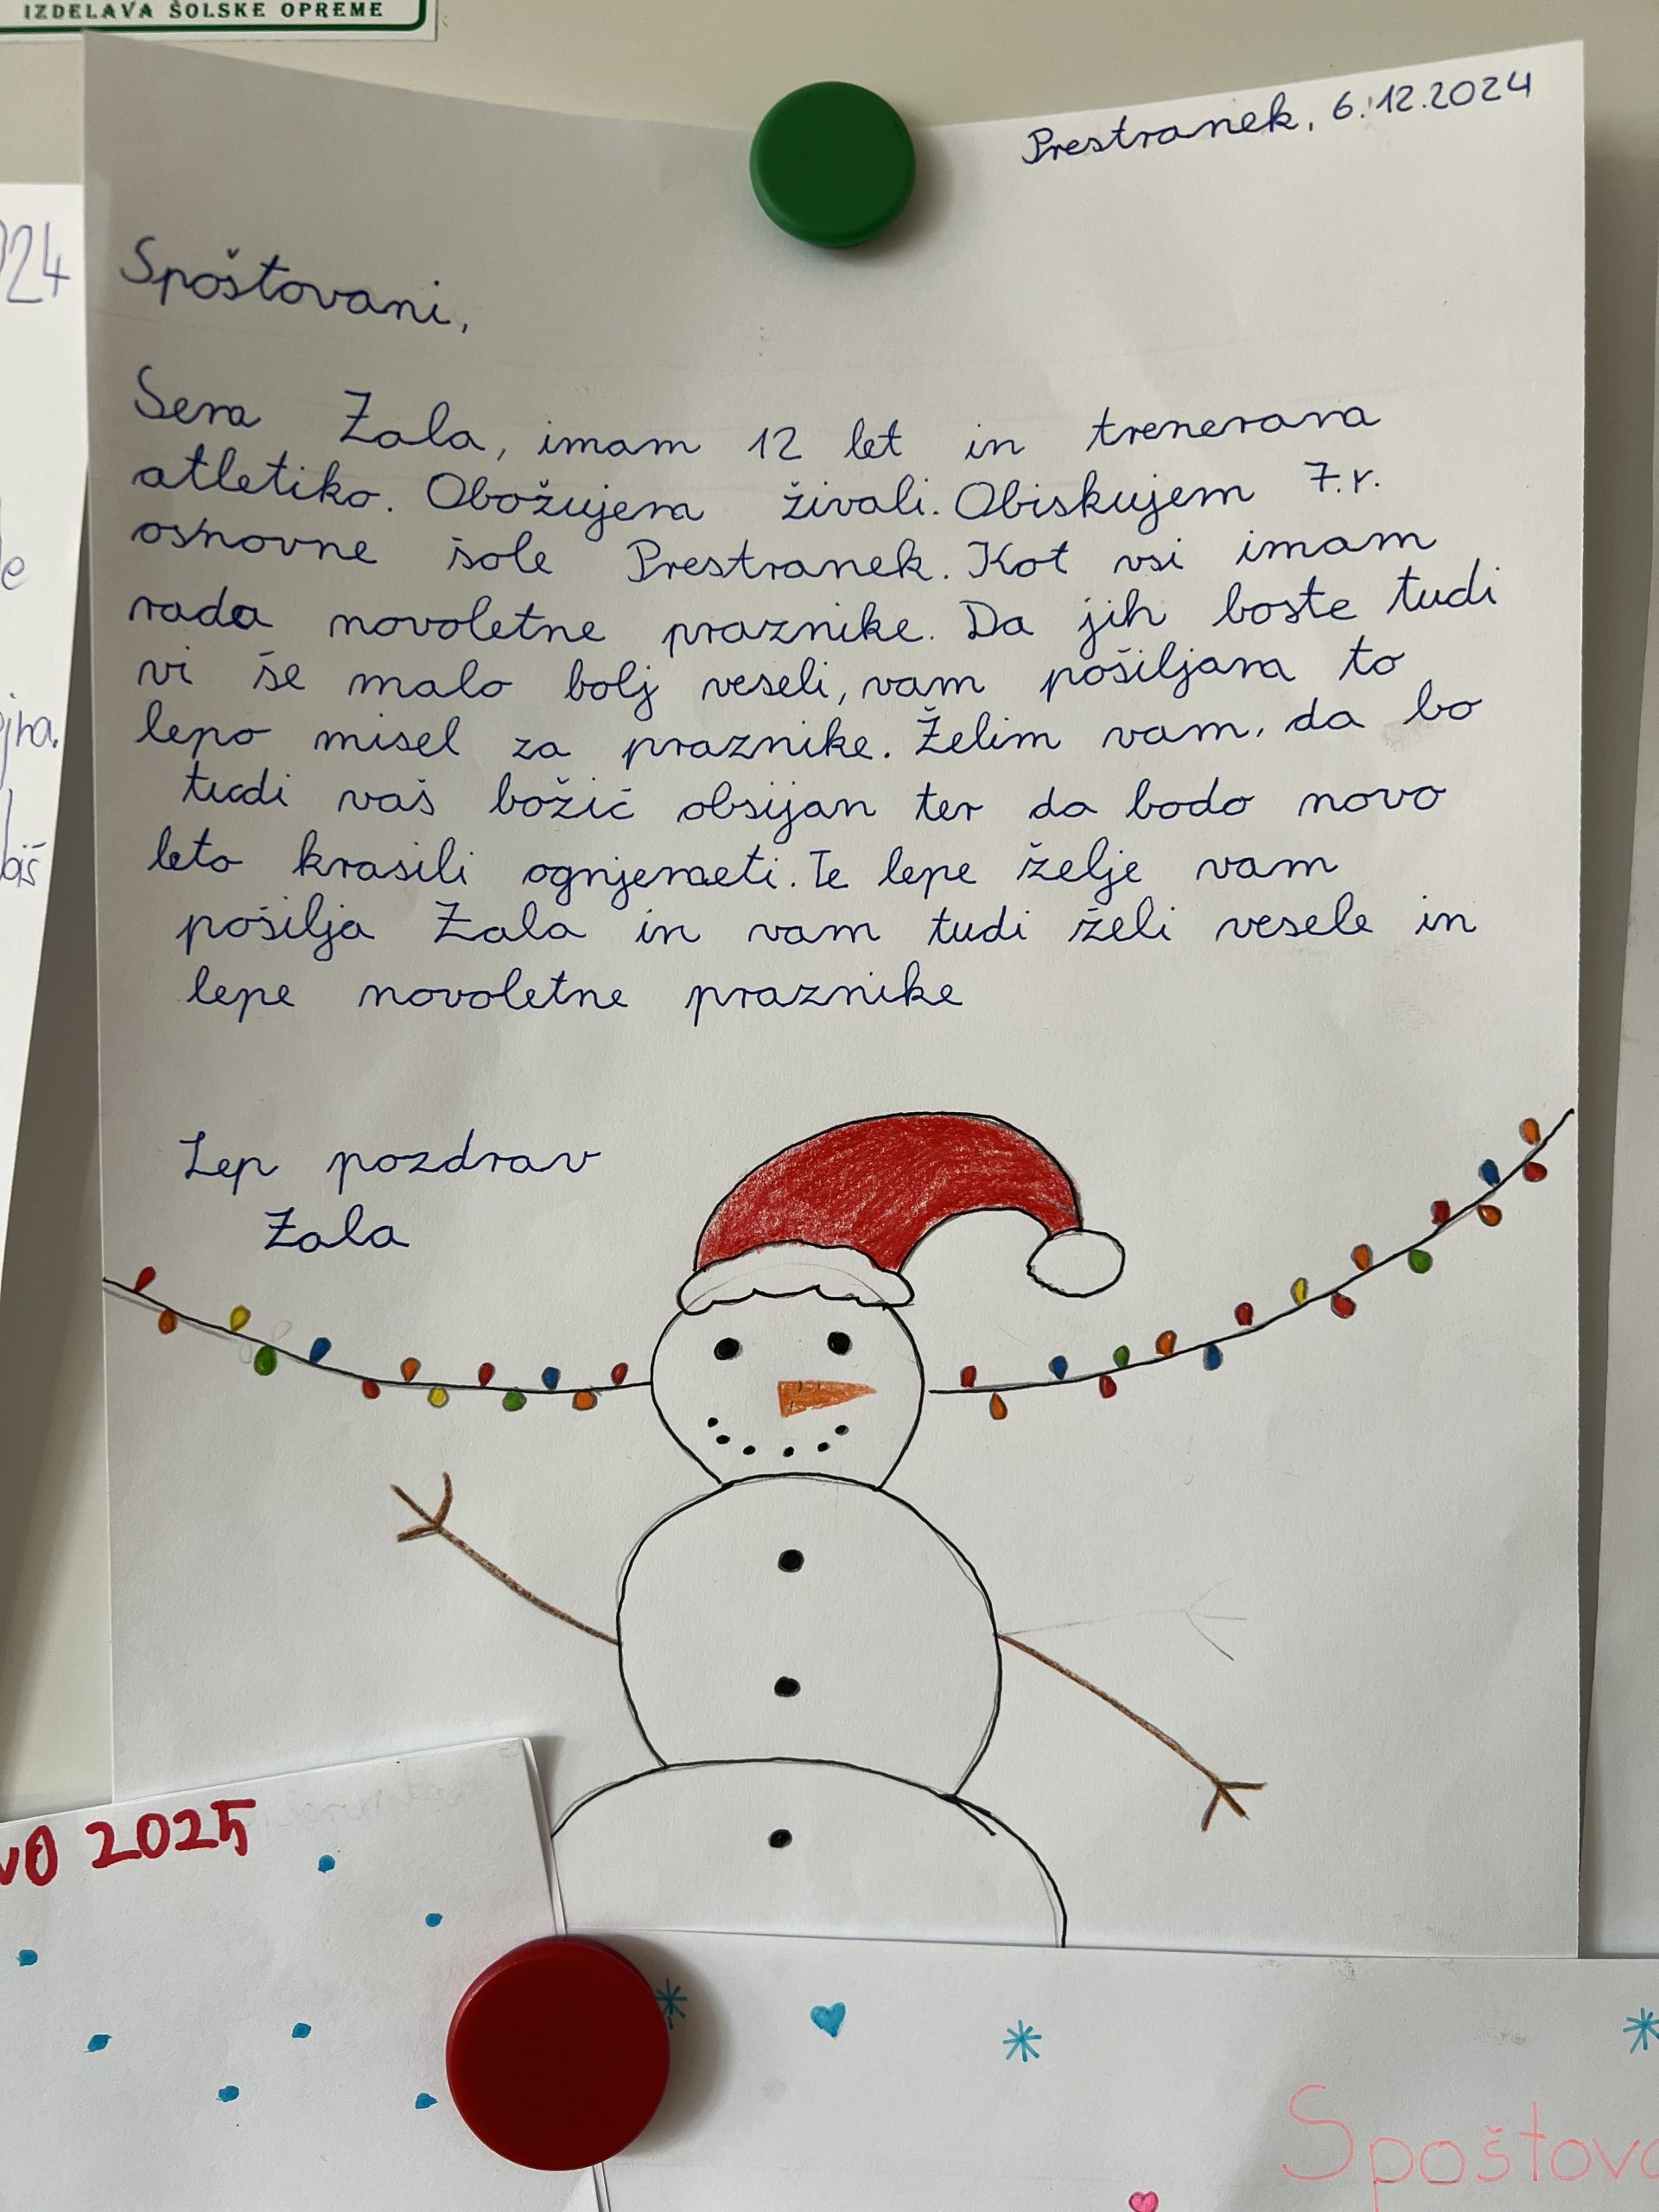 IZDELAVA ŠOLSKE OPREME
Prestranek, 6.12.2024
Spoštovani,
Sem Zala, imam 12 let in treniram
atletiko. Obožujem živali. Obiskujem 7.r.
osnovne šole Prestranek. Kot vsi imam
rada novoletne praznike. Da jih boste tudi
vi še malo bolj veseli, vam pošiljam to
lepo misel za praznike. Želim vam, da bo
tudi vaš božič obsijan ter da bodo novo
leto krasili ognjemeti. Te lepe želje vam
pošilja Zala in vam tudi želi vesele in
lepe novoletne praznike
Lep pozdrav
Zala
024
e
jna.
biš
VO 2025
Spoštova